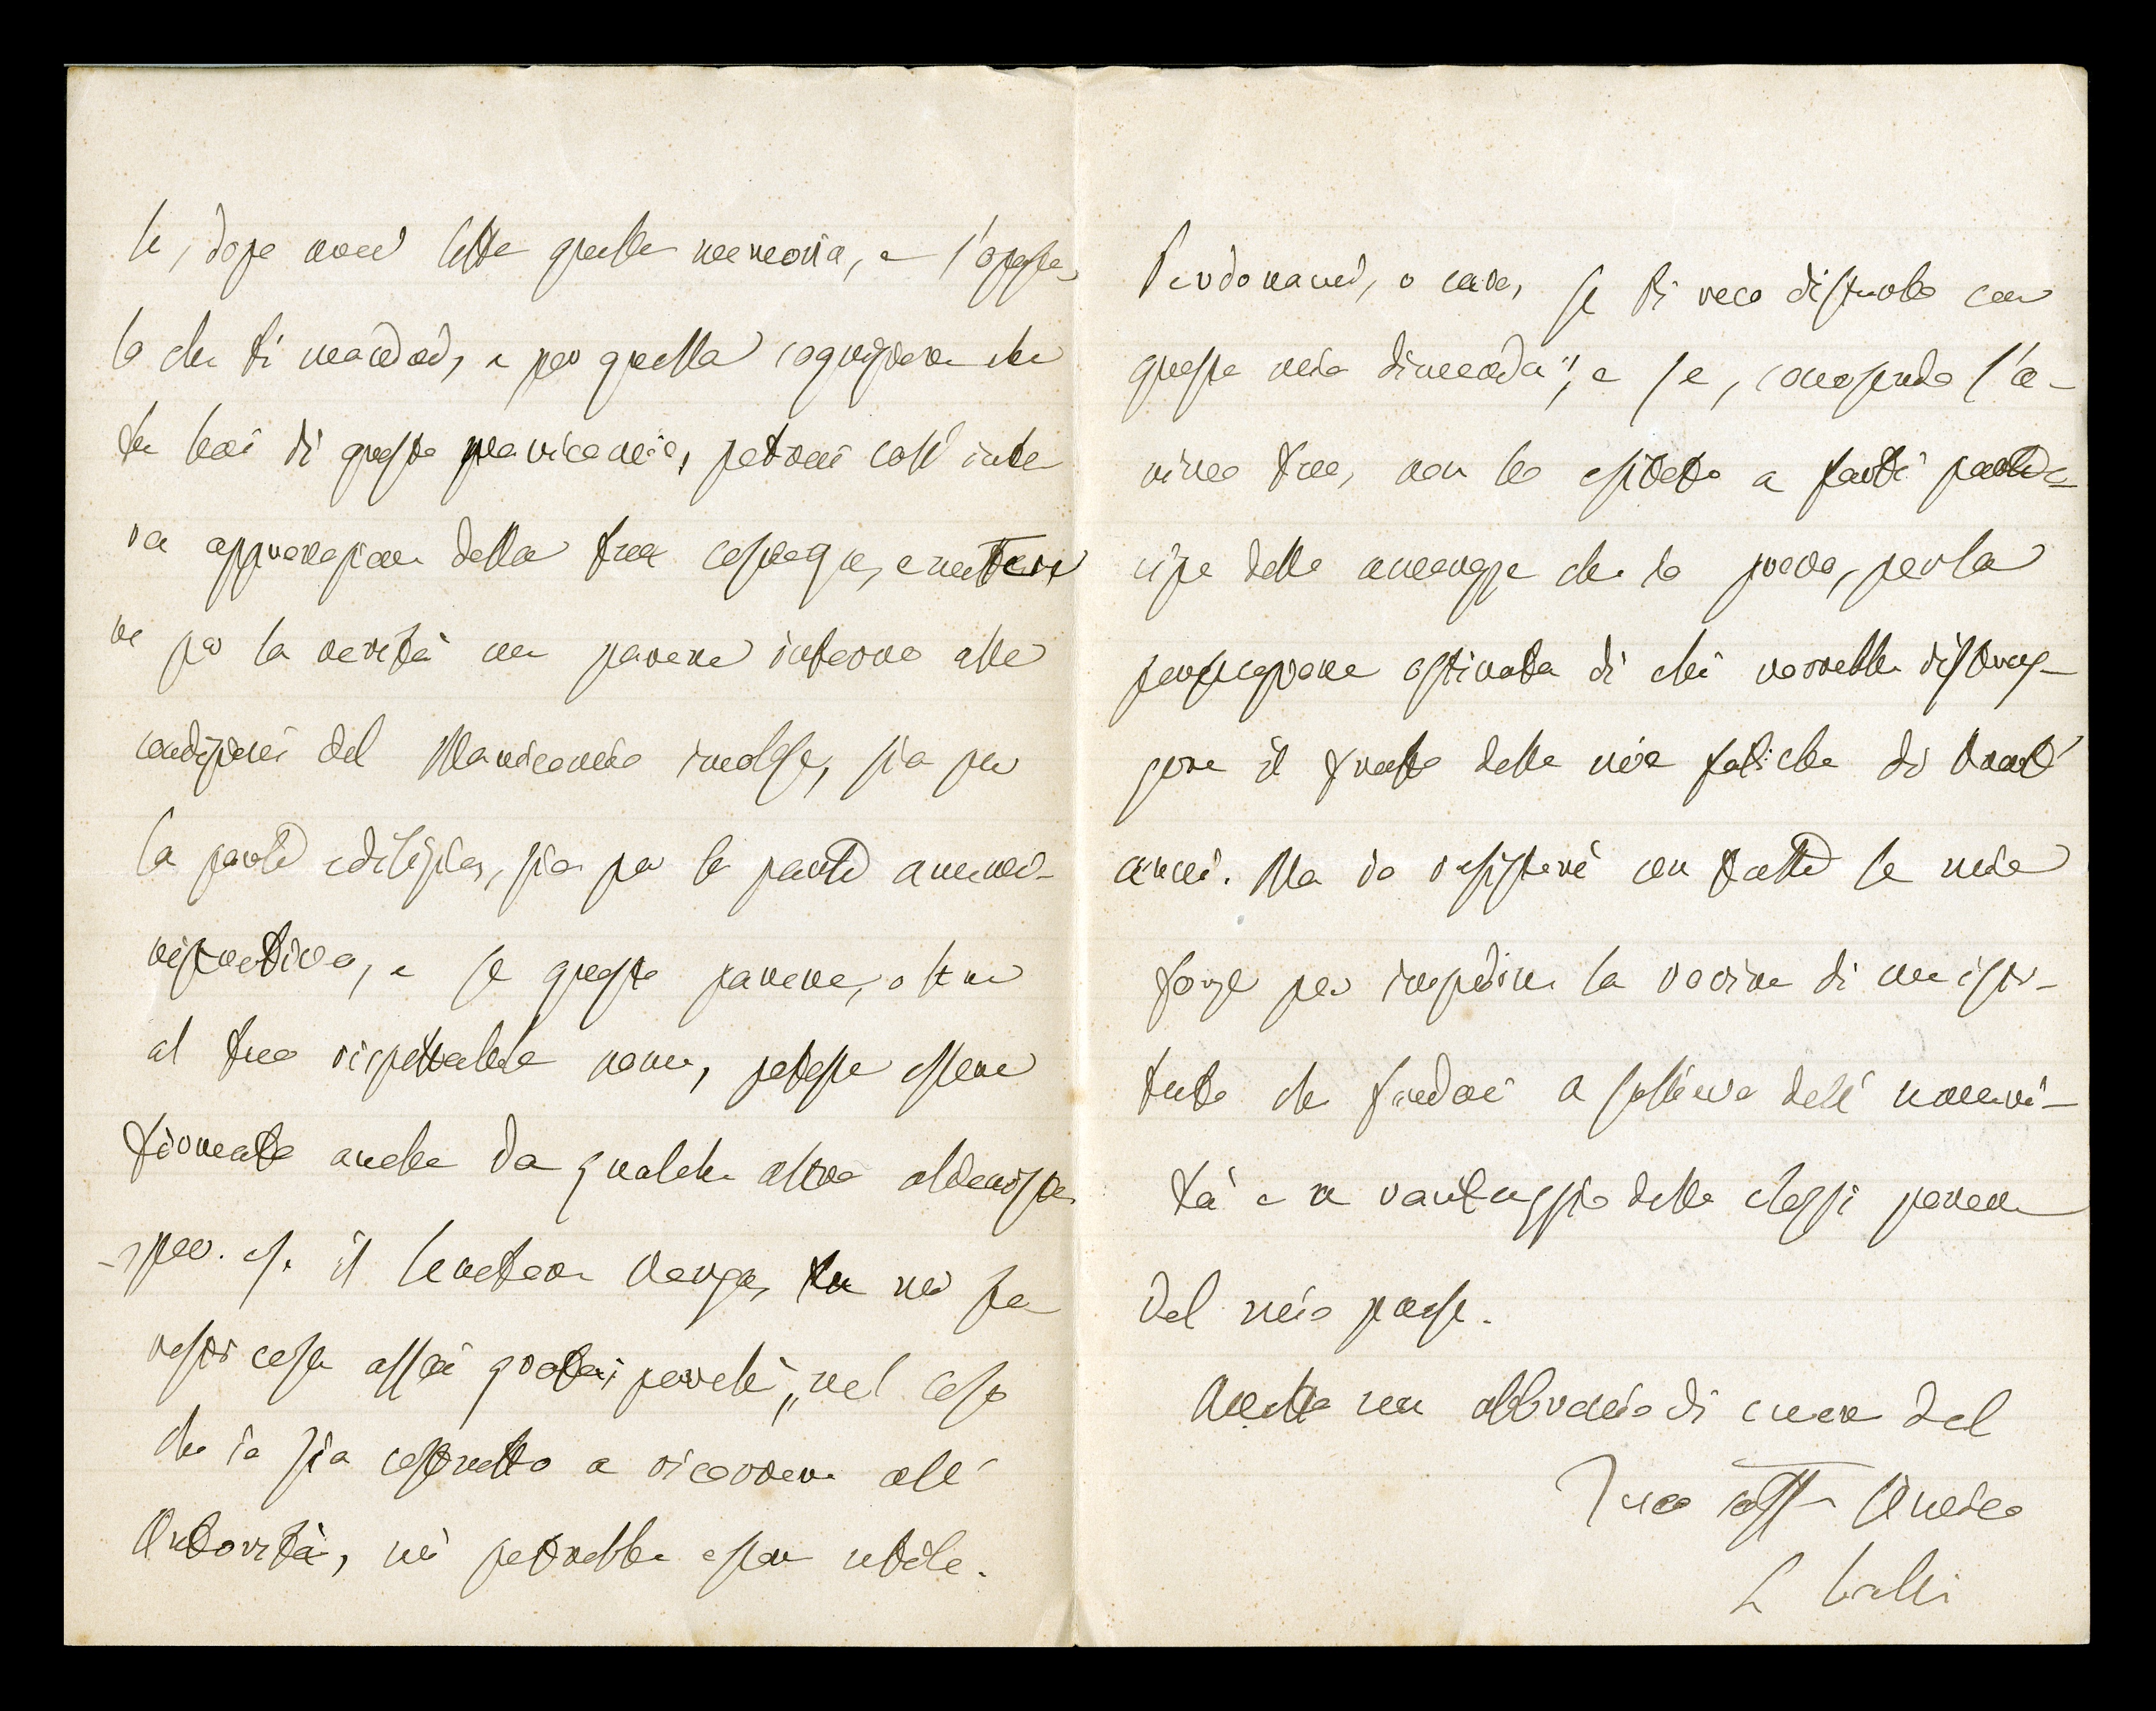 se, dopo aver letta quella memoria, e l'opusco-
lo che ti mandai, e per quella cognizione che
tu hai di questo manicomio, potrai così inte
ra approvazione della tua coscienza, emettere
ne per la verità un parere intorno alle
condizioni del Manicomio imolese, sia per
la parte edilizia, sia per la parte ammi-
nistrativa, e se questo parere, oltre
al tuo rispettabile nome, potesse essere
firmato anche da qualche altro alienista,
per. es. il Senatore Verga, tu mi fa
resti cosa assai grata, perchè, nel caso
che io sia costretto a ricorrere all'
Autorità, mi potrebbe esser utile.
Perdonami, o caro, se ti reco disturbo con
questa mia dimanda, e se, conoscendo l'a-
nimo tuo, non ho esitato a farti parte-
cipe delle amarezze che io provo, per la
persecuzione ostinata di chi vorrebbe distrug-
gere il frutto delle mie fatiche di tant'
anni. Ma io resisterò con tutte le mie
forze per impedire la rovina di un isti-
tuto che fondai a sollievo dell'umani-
tà e a vantaggio delle classi povere
del mio paese.
Accetta un abbraccio di cuore del
Tuo aff Amico
L Lolli